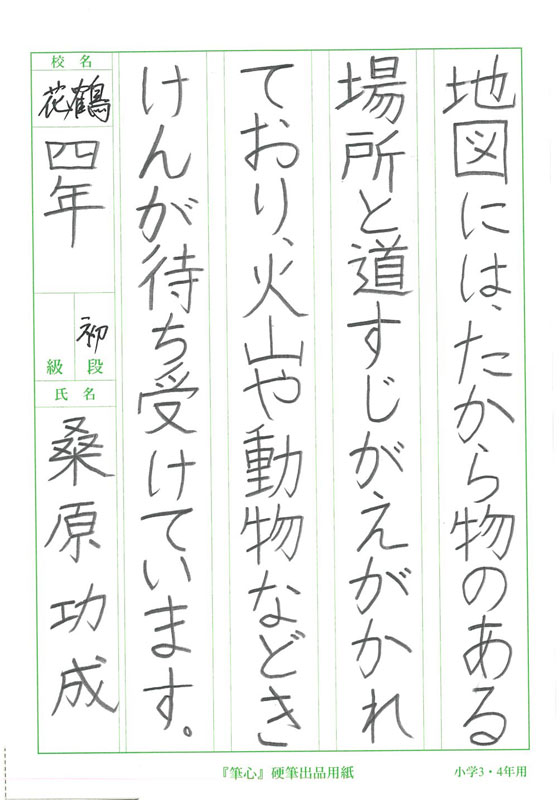 地図には、たから物のある
場所と道すじがえがかれ
ており、火山や動物などき
けんが待ち受けています。
校名
花鶴
四年
初
級段
氏名
桑原功成
『筆心』硬筆出品用紙
小学3・4年用